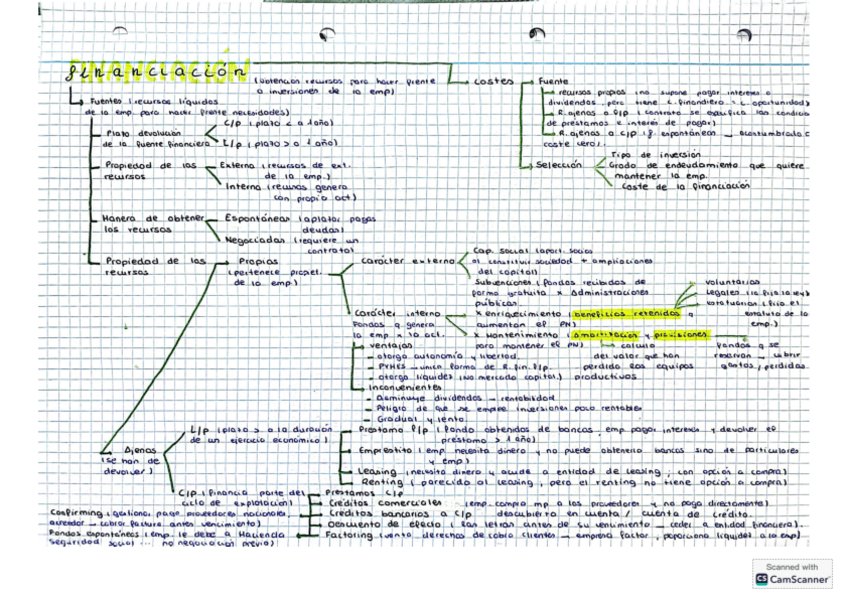 financiación (obtención recursos para hacer frente
a inversiones de la emp)
Fuentes (recursos líquidos
de la emp. para hacer frente necesidades)
Plazo devolución
de la fuente financiera
C/p (plazo < a 1 año)
L/p (plazo > a 1 año)
Propiedad de los
recursos
Externa (recursos de ext.
de la emp.)
Interna (recursos genera
con propia act)
Manera de obtener
los recursos
Espontáneas (aplazar pagos
deudas)
Negociadas (requiere un
contrato)
Propiedad de los
recursos
Propios
(pertenece propiet.
de la emp)
costes
Fuente
recursos propios (no supone pagar intereses o
dividendos, pero tiene c. financiero = c. oportunidad)
R. ajenos a l/p (contrato se especifica las condicio
de préstamos e interés de pagar).
R. ajenos a c/p (f. espontáneas acostumbrado a
coste cero).
Selección
Tipo de inversión
Grado de endeudamiento que quiere
mantener la emp.
Coste de la financiación
Carácter externo
Cap. social (aport. socios
al constituir sociedad + ampliaciones
del capital)
Subvenciones (fondos recibidos de
forma gratuita x Administraciones
públicas.
Carácter interno
Fondos q genera
la emp x la act.
x enriquecimiento (beneficios retenidos q
aumentan el PN)
voluntarias
legales (la fija la ley)
estatutarias (fija el
estatuto de la
emp.)
x Mantenimiento (amortitacios y provisiones
para mantener el PN)
calculo
del valor que han
perdido los equipos
productivos
fondos q se
reservan — cubrir
gastos, perdidas
ventajas
- otorga autonomía y libertad.
- PYMES — única forma de R. fin. l/p.
- otorga liquides (no mercado capital)
Inconvenientes
- Disminuye dividendos — rentabilidad
- Peligro de que se empre inversiones poco rentables
- Gradual y lento
Ajenas
(se han de
devolver)
L/p (plazo > a la duración
de un ejercicio económico)
Préstamo l/p (fondo obtenidos de bancos, emp. pagar intereses y devolver el
préstamo > 1 año)
Empréstito (emp necesita dinero y no puede obtenerlo bancos sino de particulares
y emp)
Leasing (necesita dinero y acude a entidad de leasing, con opción a compra)
Renting (parecido al leasing, pero el renting no tiene opción a compra)
C/p (financia parte del
ciclo de explotación)
Préstamos c/p
Créditos comerciales (emp. compra mp a los proveedores y no paga directamente)
Créditos bancarios a c/p descubierto en cuenta / cuenta de crédito
Descuento de efecto (las letras antes de su venumiento — ceder a entidad financiera).
Factoring (vento derechos de cobro clientes — empresa factor, proporciona liquides a la emp)
Confirming (gestiona pago proveedores nacionales,
acreedor — cobrar factura antes vencimiento)
Fondos espontáneos (emp le debe a Hacienda
Seguridad social ... no negociación previa)
Scanned with
CS CamScanner